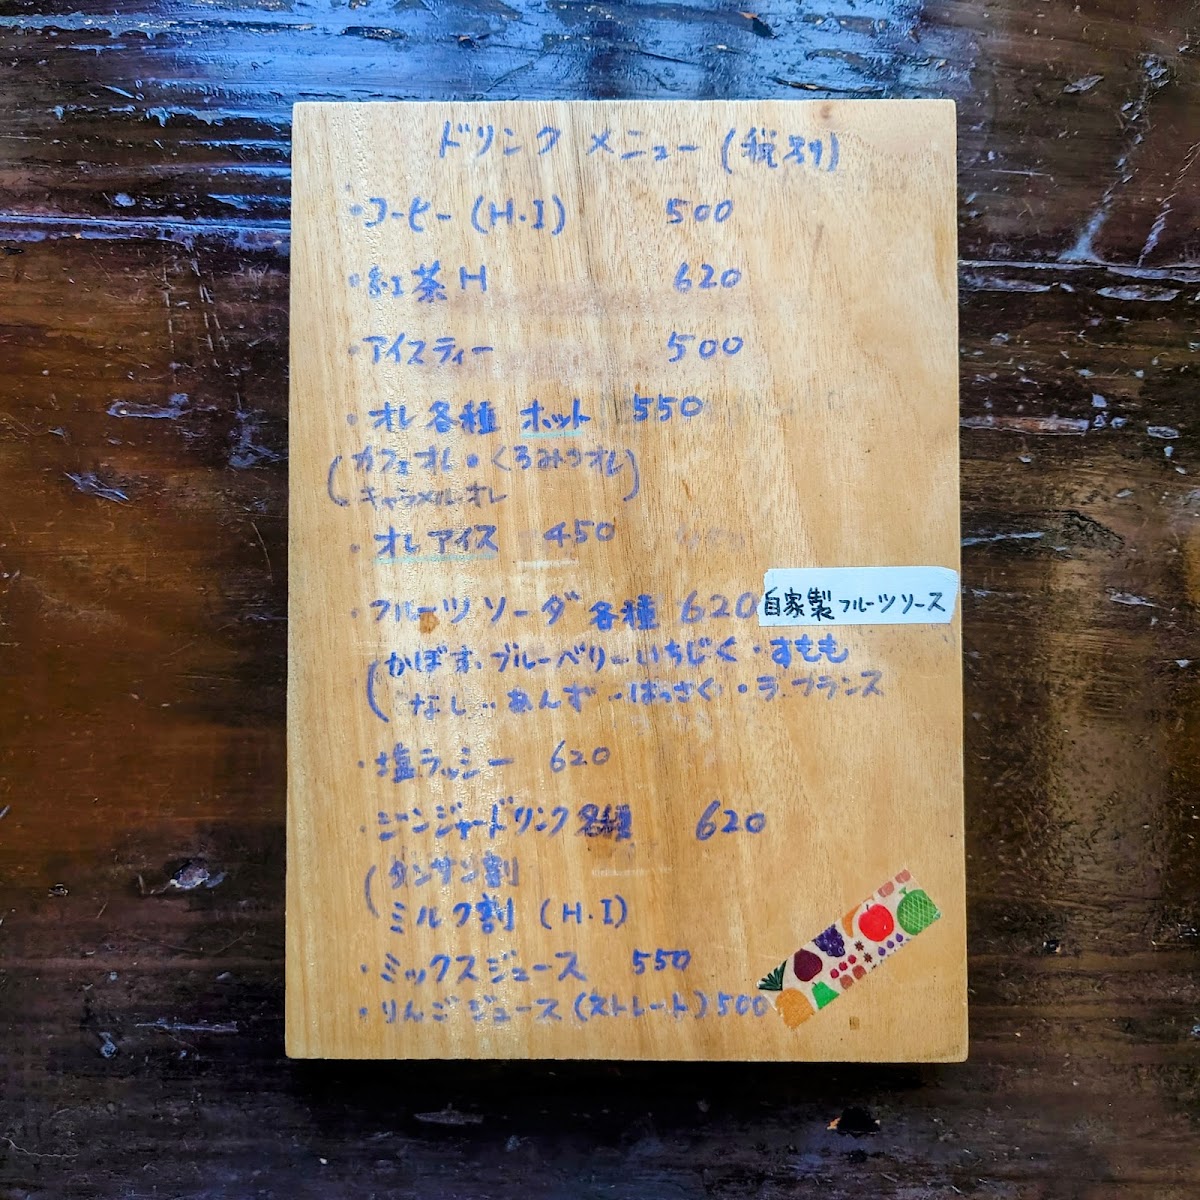 ドリンクメニュー(税別)
・コーヒー(H・I) 500
・紅茶H 620
・アイスティー 500
・オレ各種 ホット 550
(カフェオレ・くろみつオレ)
キャラメルオレ
・オレアイス 450
・フルーツソーダ各種 620
自家製フルーツソース
(かぼす・ブルーベリー・いちじく・すもも
なし・あんず・はっさく・ラ・フランス
・塩ラッシー 620
・ジンジャードリンク各種 620
(タンサン割
ミルク割(H・I)
・ミックスジュース 550
・りんごジュース(ストレート)500